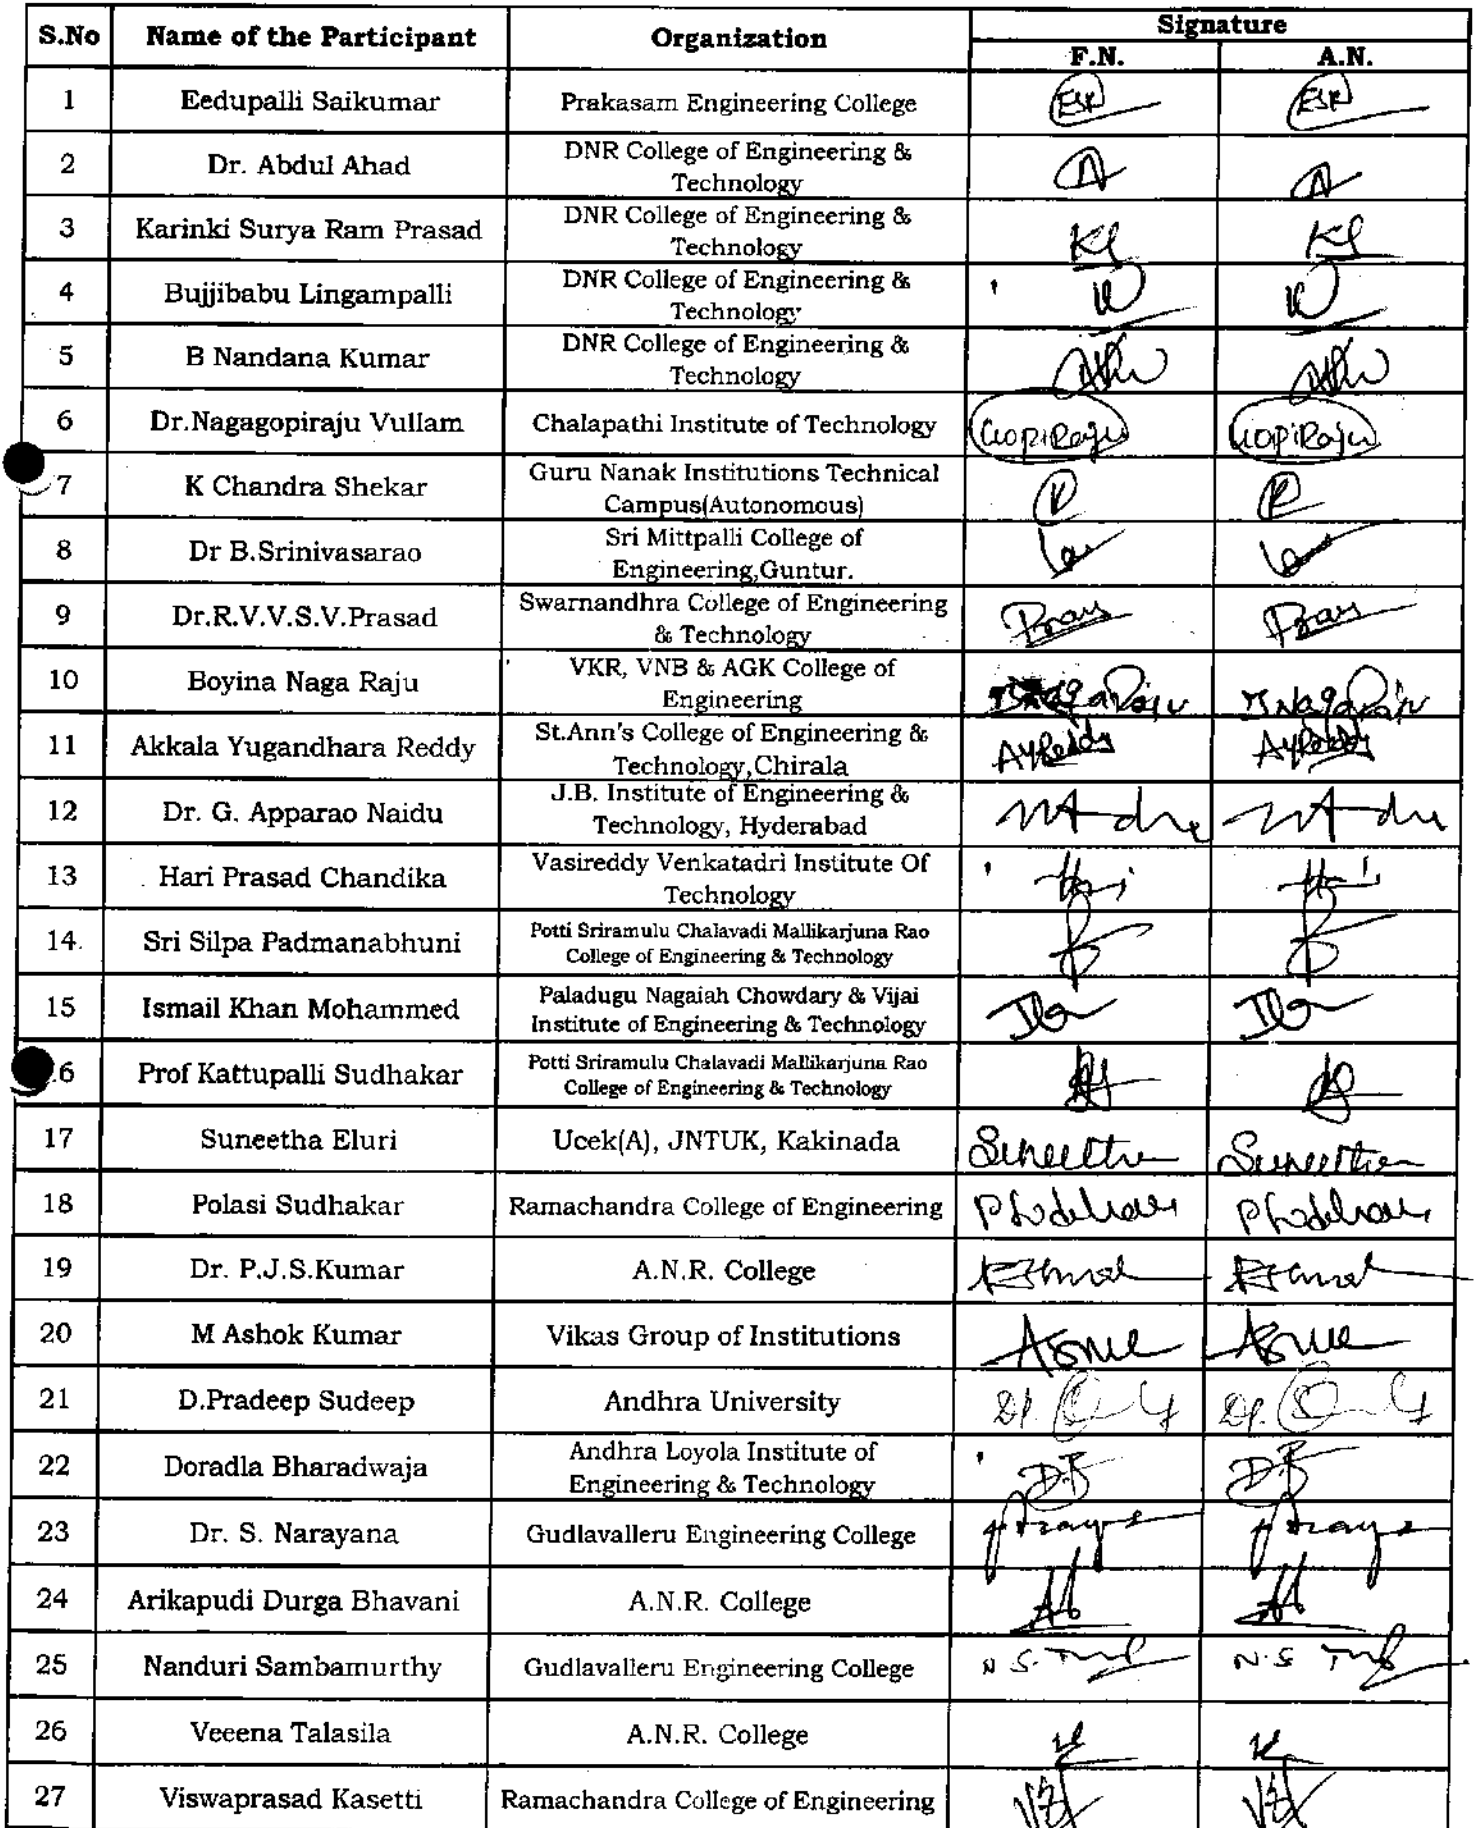 S.No Name of the Participant Organization Signature
F.N. A.N.
1 Eedupalli Saikumar Prakasam Engineering College ESK ESK
2 Dr. Abdul Ahad DNR College of Engineering &
Technology
3 Karinki Surya Ram Prasad DNR College of Engineering &
Technology
4 Bujjibabu Lingampalli DNR College of Engineering &
Technology
5 B Nandana Kumar DNR College of Engineering &
Technology
6 Dr.Nagagopiraju Vullam Chalapathi Institute of Technology GopiRaju GopiRaju
7 K Chandra Shekar Guru Nanak Institutions Technical
Campus(Autonomous)
8 Dr B.Srinivasarao Sri Mittpalli College of
Engineering,Guntur.
9 Dr.R.V.V.S.V.Prasad Swarnandhra College of Engineering
& Technology
10 Boyina Naga Raju VKR, VNB & AGK College of
Engineering
11 Akkala Yugandhara Reddy St.Ann's College of Engineering &
Technology,Chirala AYReddy AYReddy
12 Dr. G. Apparao Naidu J.B. Institute of Engineering &
Technology, Hyderabad
13 Hari Prasad Chandika Vasireddy Venkatadri Institute Of
Technology
14. Sri Silpa Padmanabhuni Potti Sriramulu Chalavadi Mallikarjuna Rao
College of Engineering & Technology
15 Ismail Khan Mohammed Paladugu Nagaiah Chowdary & Vijai
Institute of Engineering & Technology
6 Prof Kattupalli Sudhakar Potti Sriramulu Chalavadi Mallikarjuna Rao
College of Engineering & Technology
17 Suneetha Eluri Ucek(A), JNTUK, Kakinada Suneetha Suneetha
18 Polasi Sudhakar Ramachandra College of Engineering
19 Dr. P.J.S.Kumar A.N.R. College
20 M Ashok Kumar Vikas Group of Institutions
21 D.Pradeep Sudeep Andhra University
22 Doradla Bharadwaja Andhra Loyola Institute of
Engineering & Technology
23 Dr. S. Narayana Gudlavalleru Engineering College
24 Arikapudi Durga Bhavani A.N.R. College
25 Nanduri Sambamurthy Gudlavalleru Engineering College
26 Veeena Talasila A.N.R. College
27 Viswaprasad Kasetti Ramachandra College of Engineering